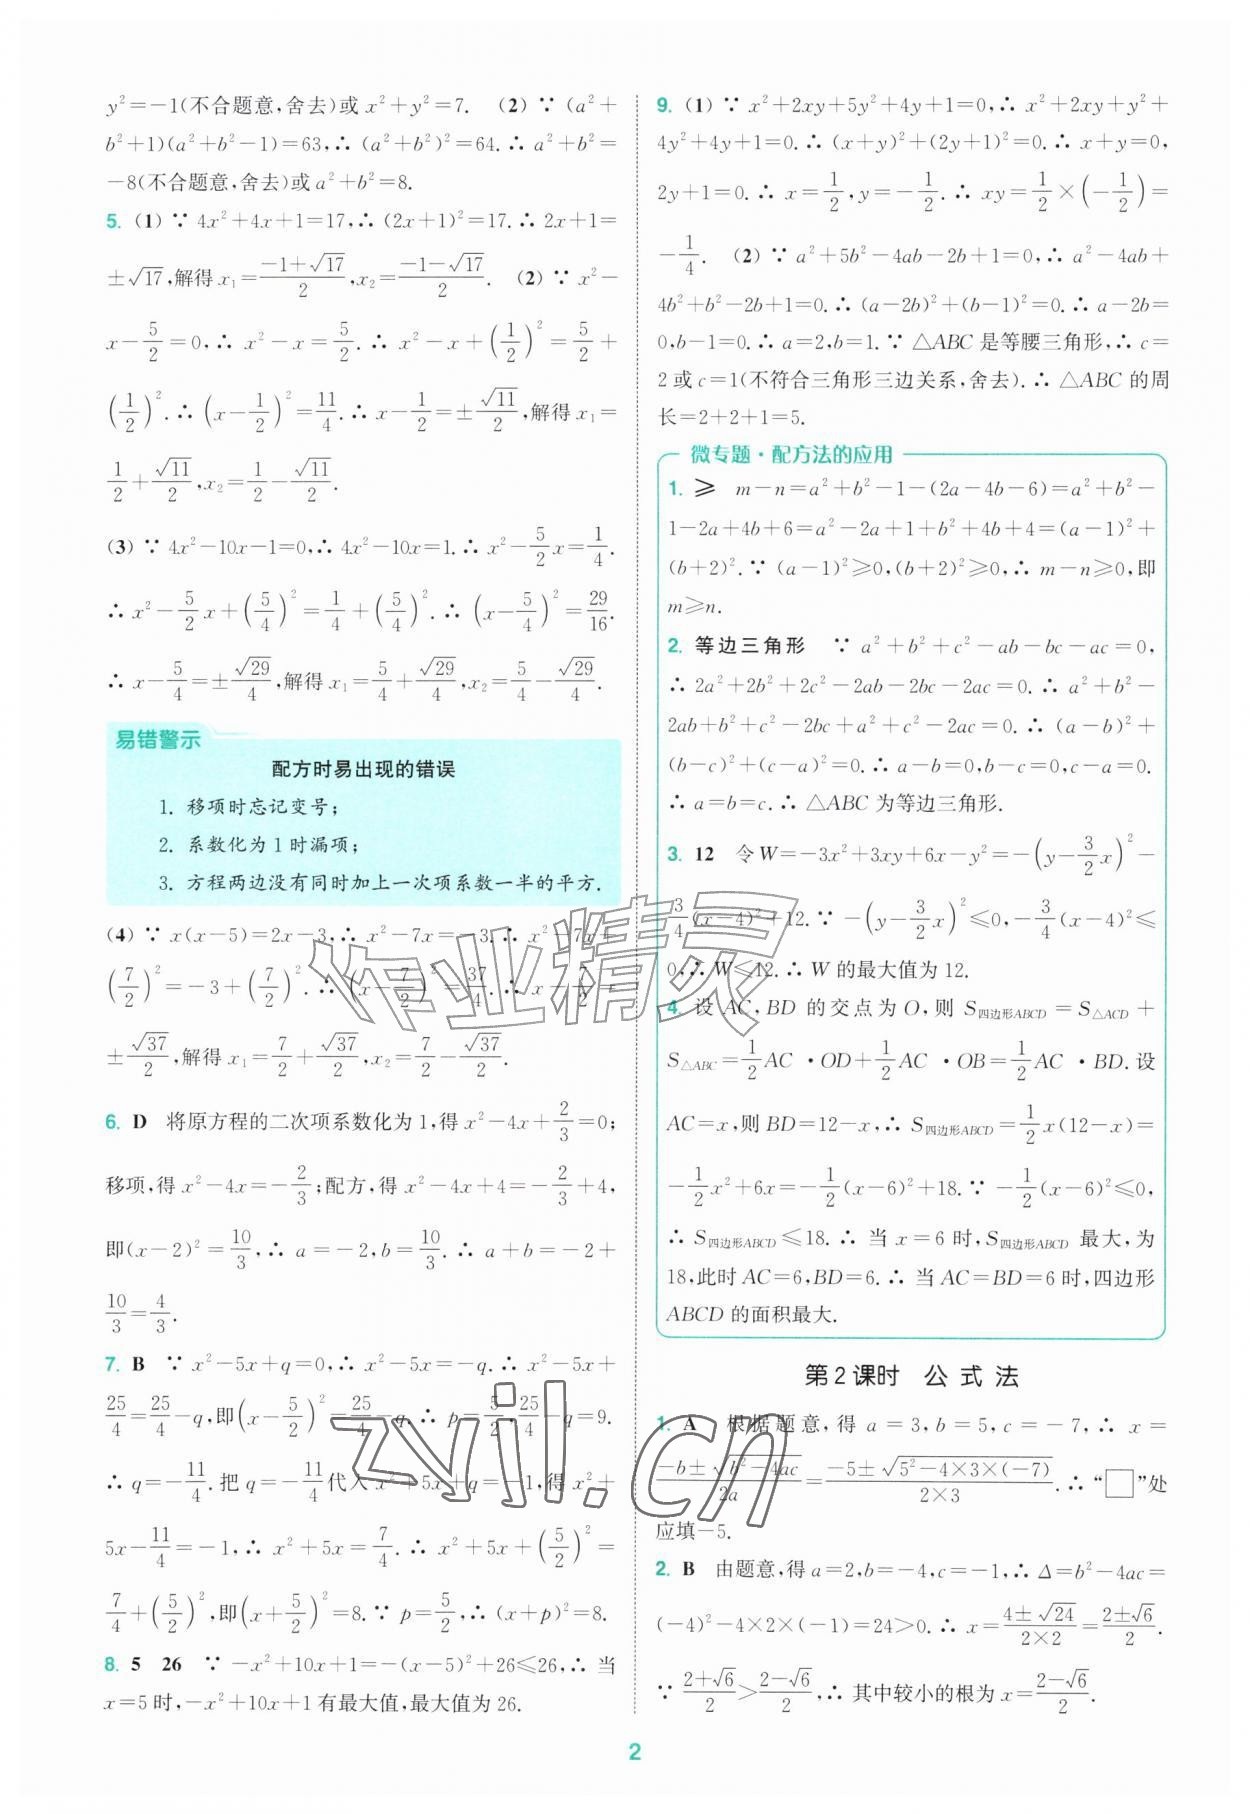 y²=-1(不合题意,舍去)或 x²+y²=7. (2) ∵ (a²+
b²+1)(a²+b²-1)=63,∴ (a²+b²)²=64.∴ a²+b²=
-8(不合题意,舍去)或 a²+b²=8.
5. (1) ∵ 4x²+4x+1=17,∴ (2x+1)²=17.∴ 2x+1=
±√17,解得 x₁=(-1+√17)/2,x₂=(-1-√17)/2. (2) ∵ x²-
x-5/2=0,∴ x²-x=5/2.∴ x²-x+(1/2)²=5/2+
(1/2)².∴ (x-1/2)²=11/4.∴ x-1/2=±√11/2,解得 x₁=
1/2+√11/2,x₂=1/2-√11/2.
(3) ∵ 4x²-10x-1=0,∴ 4x²-10x=1.∴ x²-5/2x=1/4.
∴ x²-5/2x+(5/4)²=1/4+(5/4)².∴ (x-5/4)²=29/16.
∴ x-5/4=±√29/4,解得 x₁=5/4+√29/4,x₂=5/4-√29/4.
易错警示
配方时易出现的错误
1. 移项时忘记变号;
2. 系数化为1时漏项;
3. 方程两边没有同时加上一次项系数一半的平方.
(4) ∵ x(x-5)=2x-3,∴ x²-7x=-3.∴ x²-7x+
(7/2)²=-3+(7/2)².∴ (x-7/2)²=37/4.∴ x-7/2=
±√37/2,解得 x₁=7/2+√37/2,x₂=7/2-√37/2.
6. D 将原方程的二次项系数化为1,得 x²-4x+2/3=0;
移项,得 x²-4x=-2/3;配方,得 x²-4x+4=-2/3+4,
即(x-2)²=10/3,∴ a=-2,b=10/3.∴ a+b=-2+
10/3=4/3.
7. B ∵ x²-5x+q=0,∴ x²-5x=-q.∴ x²-5x+
25/4=25/4-q,即(x-5/2)²=25/4-q.∴ p=5/2,25/4-q=9.
∴ q=-11/4.把 q=-11/4代入 x²+5x+q=-1,得 x²+
5x-11/4=-1,∴ x²+5x=7/4.∴ x²+5x+(5/2)²=
7/4+(5/2)²,即(x+5/2)²=8.∵ p=5/2,∴ (x+p)²=8.
8. 5 26 ∵ -x²+10x+1=-(x-5)²+26≤26,∴ 当
x=5时,-x²+10x+1有最大值,最大值为26.
9. (1) ∵ x²+2xy+5y²+4y+1=0,∴ x²+2xy+y²+
4y²+4y+1=0.∴ (x+y)²+(2y+1)²=0.∴ x+y=0,
2y+1=0.∴ x=1/2,y=-1/2.∴ xy=1/2×(-1/2)=
-1/4. (2) ∵ a²+5b²-4ab-2b+1=0,∴ a²-4ab+
4b²+b²-2b+1=0.∴ (a-2b)²+(b-1)²=0.∴ a-2b=
0,b-1=0.∴ a=2,b=1.∵ △ABC是等腰三角形,∴ c=
2或 c=1(不符合三角形三边关系,舍去).∴ △ABC的周
长=2+2+1=5.
微专题·配方法的应用
1. ≥ m-n=a²+b²-1-(2a-4b-6)=a²+b²-
1-2a+4b+6=a²-2a+1+b²+4b+4=(a-1)²+
(b+2)².∵ (a-1)²≥0,(b+2)²≥0,∴ m-n≥0,即
m≥n.
2. 等边三角形 ∵ a²+b²+c²-ab-bc-ac=0,
∴ 2a²+2b²+2c²-2ab-2bc-2ac=0.∴ a²+b²-
2ab+b²+c²-2bc+a²+c²-2ac=0.∴ (a-b)²+
(b-c)²+(c-a)²=0.∴ a-b=0,b-c=0,c-a=0.
∴ a=b=c.∴ △ABC为等边三角形.
3. 12 令W=-3x²+3xy+6x-y²=-(y-3/2x)²-
3/4(x-4)²+12.∵ -(y-3/2x)²≤0,-3/4(x-4)²≤
0,∴ W≤12.∴ W的最大值为12.
4. 设 AC,BD的交点为O,则 S四边形ABCD=S△ACD+
S△ABC=1/2AC·OD+1/2AC·OB=1/2AC·BD.设
AC=x,则BD=12-x,∴ S四边形ABCD=1/2x(12-x)=
-1/2x²+6x=-1/2(x-6)²+18.∵ -1/2(x-6)²≤0,
∴ S四边形ABCD≤18.∴ 当 x=6时,S四边形ABCD最大,为
18,此时AC=6,BD=6.∴ 当AC=BD=6时,四边形
ABCD的面积最大.
第2课时 公式法
1. A 根据题意,得 a=3,b=5,c=-7,∴ x=
(-b±√(b²-4ac))/(2a)=(-5±√(5²-4×3×(-7)))/(2×3).∴ “□”处
应填-5.
2. B 由题意,得 a=2,b=-4,c=-1,∴ Δ=b²-4ac=
(-4)²-4×2×(-1)=24>0.∴ x=(4±√24)/(2×2)=(2±√6)/2.
∵ (2+√6)/2>(2-√6)/2,∴ 其中较小的根为 x=(2-√6)/2.
作业精灵
zyjl.cn
2